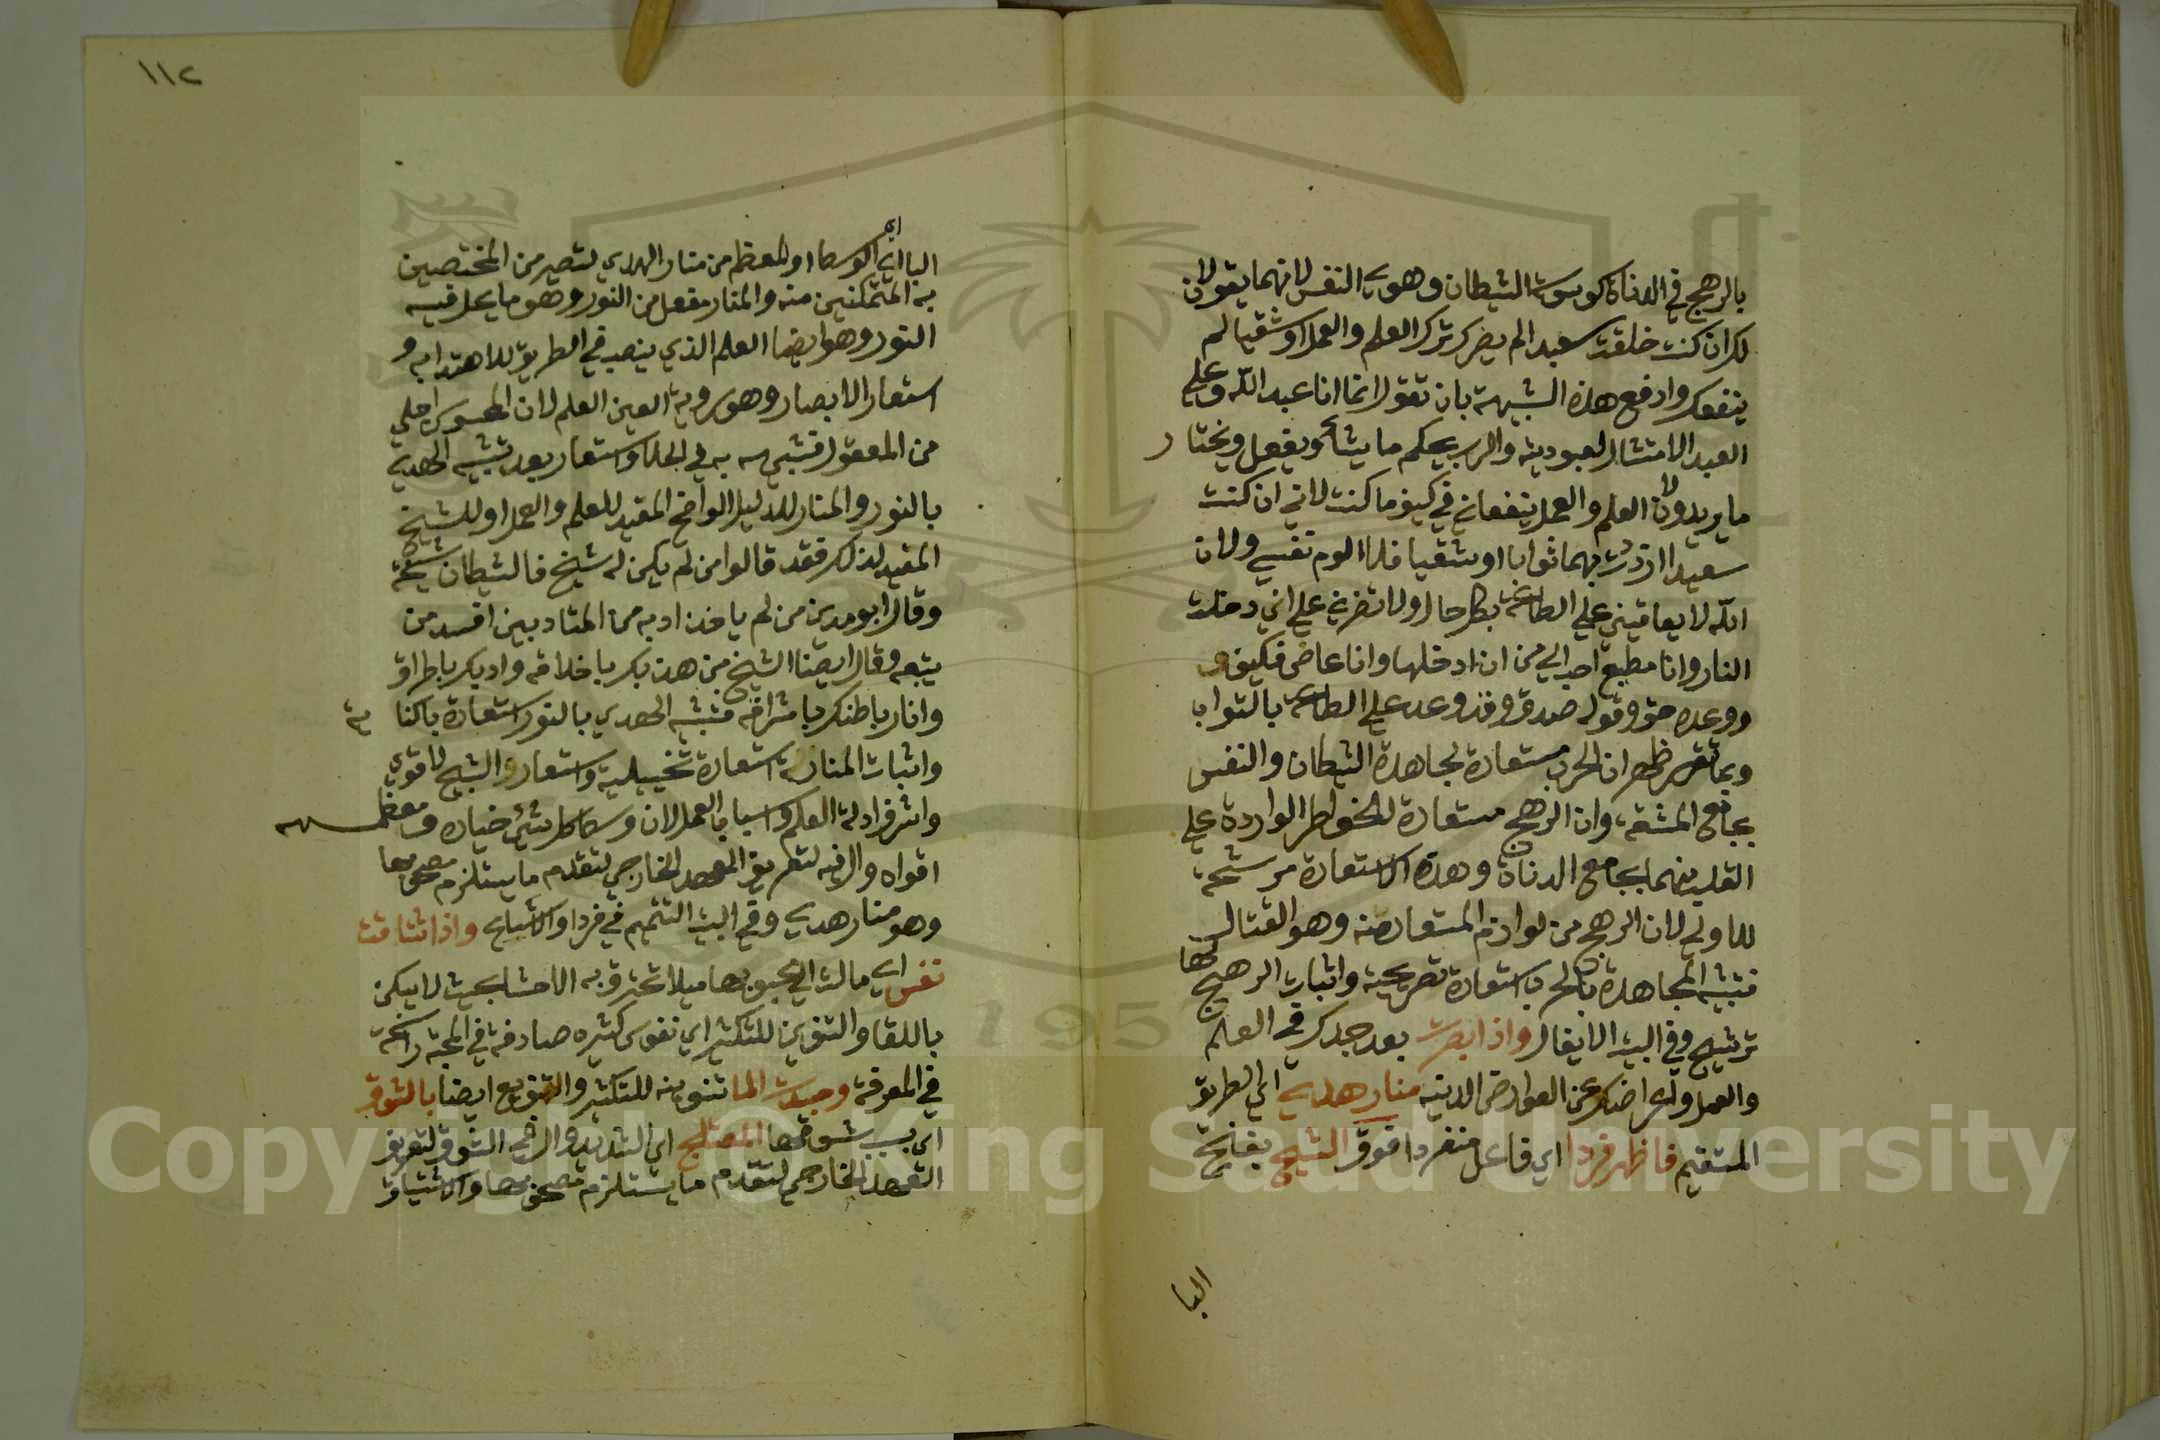 بالرهج في الدناة كوسوسة الشيطان وهوي النفس لانهما يقولان
لك ان كنت خلقت سعيدا لم يضرك ترك العلم والعمل او شقيا لم
ينفعك وادفع هذه الشبهة بان تقول انما انا عبد الله وعلي
العبد الامتثال لعبوديته والرب يحكم ما يشاء ويفعل ويختار
ما يريد ولان العلم والعمل ينفعاني في كيف ما كنت لاني ان كنت
سعيدا ازددت بهما ثوابا او شقيا فلا الوم نفسي ولان
الله لا يعاقبني علي الطاعة بكل حال ولا تضرني علي اني دخلت
النار وانا مطيع احب الي من ان ادخلها وانا عاص فكيف و
ووعده حق وقوله صدق وقد وعد علي الطاعة بالثواب
وبما تقرر ظهر ان الحرب مستعارة لمجاهدة الشيطان والنفس
بجامع المشقة وان الرهج مستعارة للخواطر الواردة علي
القلب منهما بجامع الدناة وهذه الاستعارة مرشحة
للاولي لان الرهج من لوازم المستعار منه وهو القتال
فتشبيه المجاهدة بالحرب استعارة تصريحية واثبات الرهج لها
ترشيح وفي البيت الايغال واذا ابصرت بعد جدك في العلم
والعمل واعراضك عن العوارض الدنية منار هدي اي الطريق
المستقيم فاظهر فردا اي فاعل منفردا فوق الثبج بفتح
البا
١١٢
الباء اي الوسط او المعظم من منار الهدي لتصير من المختصين
به المتمكنين منه والمنار مفعل من النور وهو ما يحل فيه
النور وهو ايضا العلم الذي ينصب في الطريق للاهتدا به و
استعار الابصار وهو روية العين للعلم لان المحسوس اجلي
من المعقول فتشبيهه به في الجلا واستعار بعد تشبيه الهدي
بالنور والمنار للدليل الواضح المقيد للعلم والعمل او للشيخ
المقيد لذلك فقد قالوا من لم يكن له شيخ فالشيطان شيخه
وقال ابو مدين من لم ياخذ ادبه من المتادبين افسد من
يتبعه وقال ايضا الشيخ من هذبك باخلاقه وادبك باطراقه
وانار باطنك باشراقه فتشبيه الهدي بالنور استعارة بالكناية
واثبات المنار له استعارة تخييلية واستعار الثبج لاقوي
واشرف ادلة العلم واسباب العمل لان وسط كل شيء خياره ومعظمه
اقواه وال فيه لتعريف العهد الخارجي لتقدم ما يستلزم مصحوبها
وهو منار هدي وفي البيت التتميم في فردا والاشباع واذا اشتاقت
نفس اي مالت الي محبوبها ميلا تحترق به الاحشا بحيث لا يسكن
باللقا والتنوين للتكثير اي نفوس كثيره صادقة في المحبة راسخة
في المعرفة وجدت الما تنوينه للتكثير والتنويع ايضا بالشوق
اي بسبب شوقها المعتلج اي الشديد وال في الشوق لتعريف
العهد الخارجي لتقدم ما يستلزم مصحوبها والاشتياق